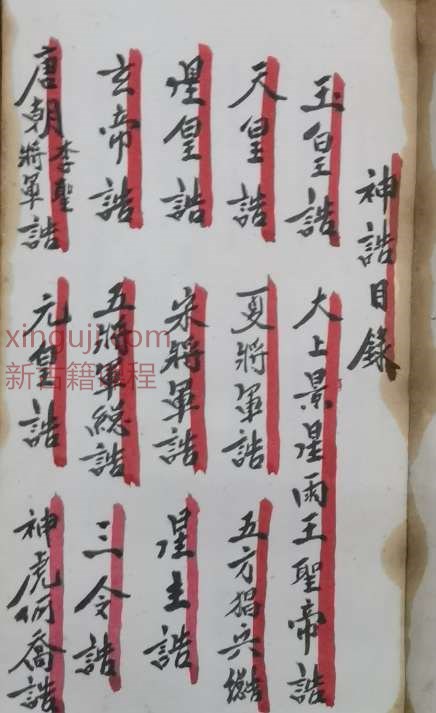 神誥目錄
玉皇誥
太上景星雨王聖帝誥
天皇誥
夏將軍誥
五方猖兵總誥
星皇誥
宋將軍誥
星主誥
玄帝誥
五將軍總誥
三令誥
唐朝將軍李聖誥
元皇誥
神虎何喬誥
xinguji.com
新古籍
程